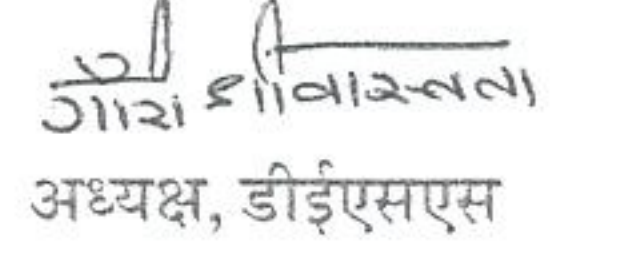 गौरी श्रीवास्तवा
अध्यक्ष, डीईएसएस